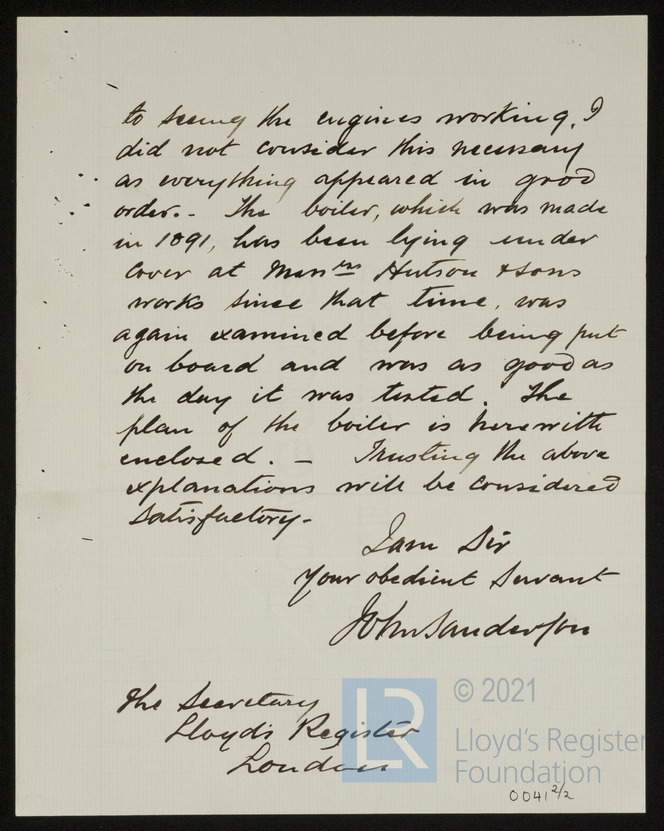 to seeing the engines working, I
did not consider this necessary
as everything appeared in good
order.- The boiler, which was made
in 1891, has been lying under
cover at Messrs Hutson & Sons
works since that time, was
again examined before being put
on board and was as good as
the day it was tested. The
plan of the boiler is herewith
enclosed. — Trusting the above
explanations will be considered
satisfactory-
I am Sir
Your obedient Servant
John Sanderson
The Secretary
Lloyd's Register
London
LR
© 2021
Lloyd's Register
Foundation
0041 2/2